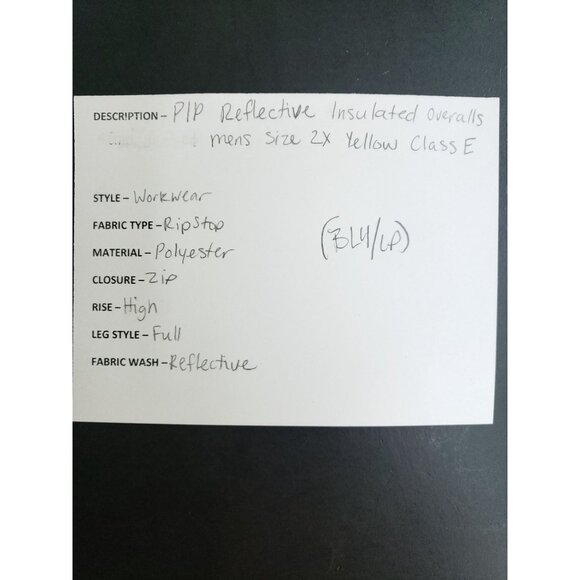 DESCRIPTION – PIP Reflective Insulated Overalls
mens Size 2X Yellow Class E
STYLE – Workwear
FABRIC TYPE – RipStop
MATERIAL – Polyester
(BL4/LP)
CLOSURE – Zip
RISE – High
LEG STYLE – Full
FABRIC WASH – Reflective